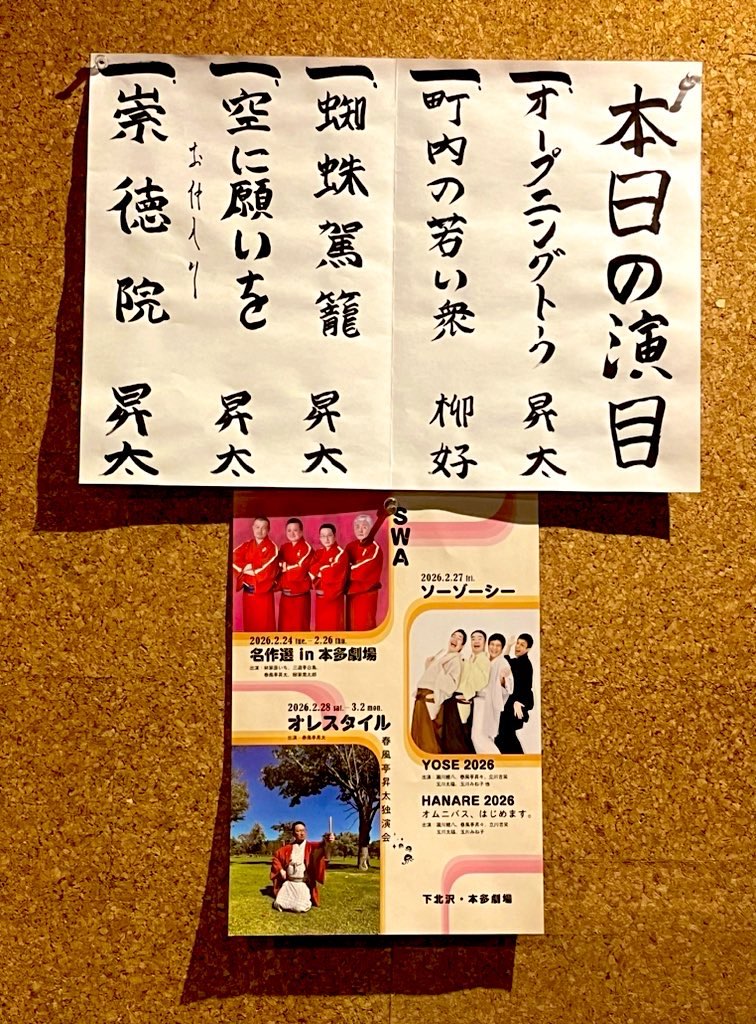 本日の演目
一、オープニングトーク 昇太
一、町内の若い衆 柳好
一、蜘蛛駕籠 昇太
一、空に願いを 昇太
お仲入り
一、崇徳院 昇太
SWA
2026.2.24 tue. - 2.26 thu.
名作選 in 本多劇場
出演:林家彦いち、三遊亭白鳥、
春風亭昇太、柳家喬太郎
2026.2.27 fri.
ソーゾーシー
YOSE 2026
出演:瀧川鯉八、春風亭昇々、立川吉笑
玉川太福、玉川みね子 他
HANARE 2026
オムニバス、はじめます。
出演:瀧川鯉八、春風亭昇々、立川吉笑
玉川太福、玉川みね子
2026.2.28 sat. - 3.2 mon.
オレスタイル
出演:春風亭昇太
春風亭昇太独演会
下北沢・本多劇場